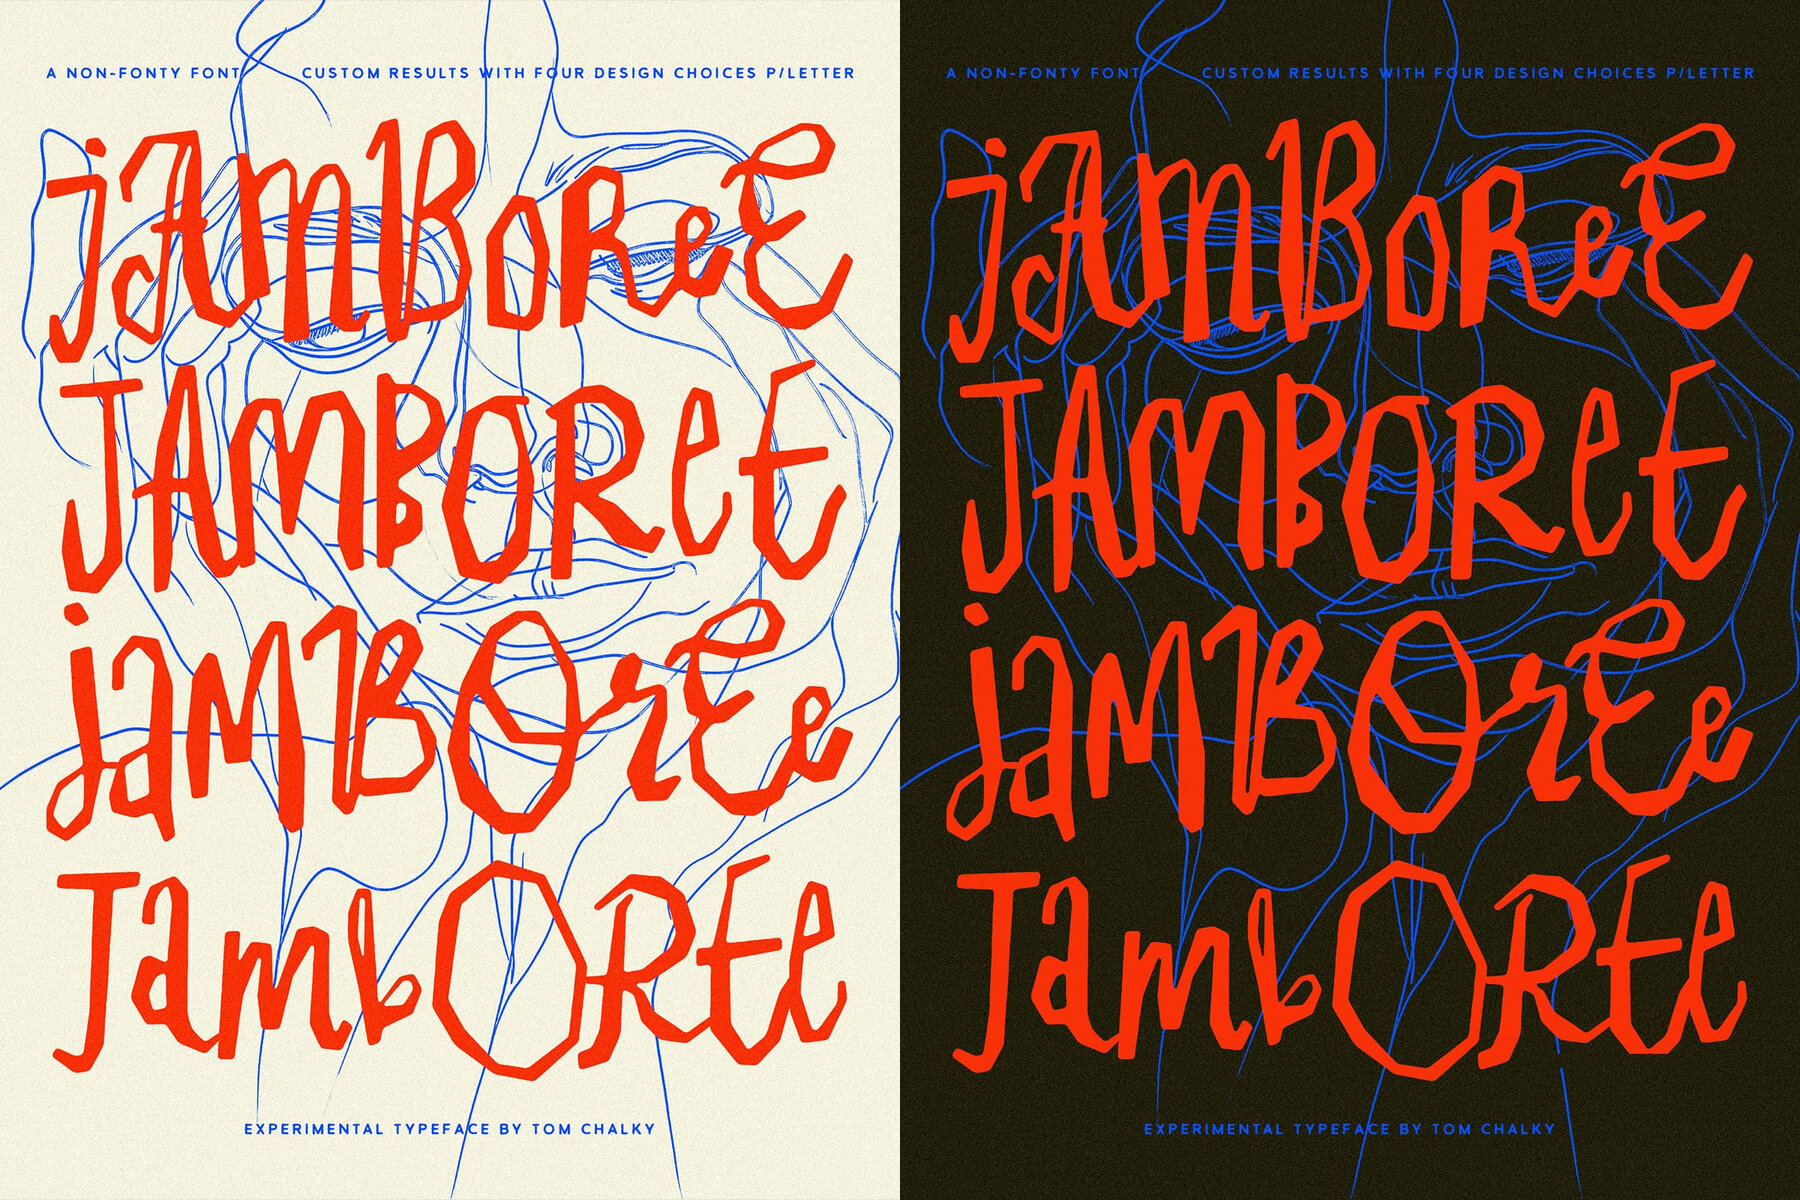 A NON-FONTY FONT CUSTOM RESULTS WITH FOUR DESIGN CHOICES P/LETTER
jAmBoReE
JAMBOREE
jaMBOrEe
JambOREe
EXPERIMENTAL TYPEFACE BY TOM CHALKY
A NON-FONTY FONT CUSTOM RESULTS WITH FOUR DESIGN CHOICES P/LETTER
jAmBoReE
JAMBOREE
jaMBOrEe
JambOREe
EXPERIMENTAL TYPEFACE BY TOM CHALKY